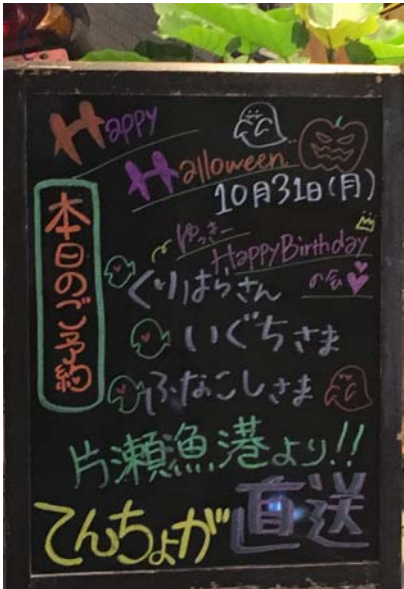 Happy
Halloween
10月31日(月)
本日のご予約
ゆっきー
Happy Birthday
の会
くりはらさん
いぐちさま
ふなこしさま
片瀬漁港より!!
てんちょが直送